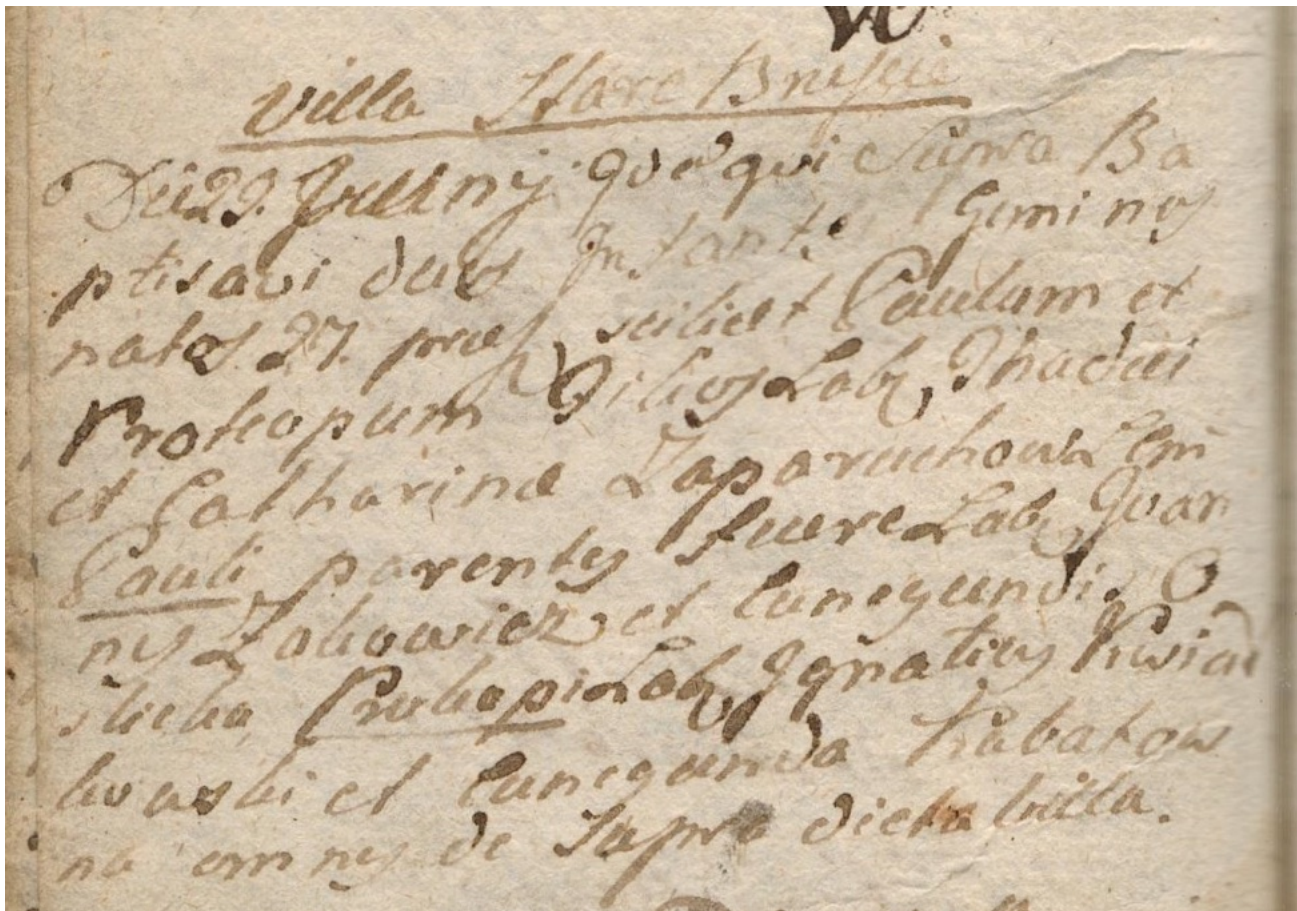 Villa Stare Brzescie
Die 29. Junny Idē qui Supra Ba
ptisavi duos Infantes Geminos
natos 27. praes scilicet Paulum et
Prokopum Filios Lab, Thadei
et Catharinæ Zaparuchow L em
Pauli parentes fuere Lab, Joan
nes Zakowicz et Cunegundis O
slicka, Prokopi Lab, Ignatius Kwiat
kowski et Cunegunda Kubatow
na omnes de Supra dicta Villa.